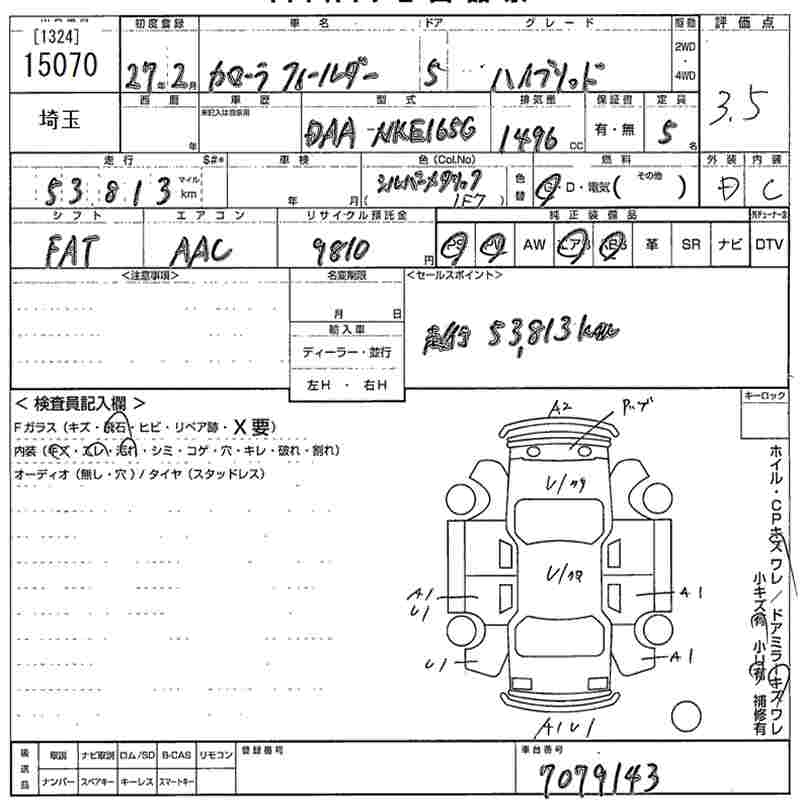 [1324]
15070
埼玉
初度登録 車名 ドア グレード 駆動 評価点
27年2月 カローラ フィールダー 5 ハイブリッド 2WD・4WD 3.5
西暦 車歴 型式 排気量 保証書 定員
年 未記入は自家用 DAA-NKE165G 1496cc 有・無 5名
走行 S#* 車検 色(Col.No) 燃料 外装 内装
53813 マイル km 年 月 シルバーメタリック (1F7) 色替 G・D・電気( その他 ) D C
シフト エアコン リサイクル預託金 純正装備品
FAT AAC 9810円 PS PW AW エアB ABS 革 SR ナビ DTV
<注意事項> 名変期限 <セールスポイント>
月 日
輸入車
ディーラー・並行
左H・右H
走行 53,813km
< 検査員記入欄 >
Fガラス(キズ・飛石・ヒビ・リペア跡・X要)
内装(キズ・スレ・汚れ・シミ・コゲ・穴・キレ・破れ・割れ)
オーディオ(無し・穴)/タイヤ(スタッドレス)
キーロック
A2
U/
U/
A1
U1
A1
U1
A1
A1U1
ホイル・CPキズワレ/ドアミラーキズワレ
小キズ有 小U有 補修有
後送品 取説 ナビ取説 ロム/SD B-CAS リモコン 登録番号 車台番号
ナンバー スペアキー キーレス スマートキー 7079143